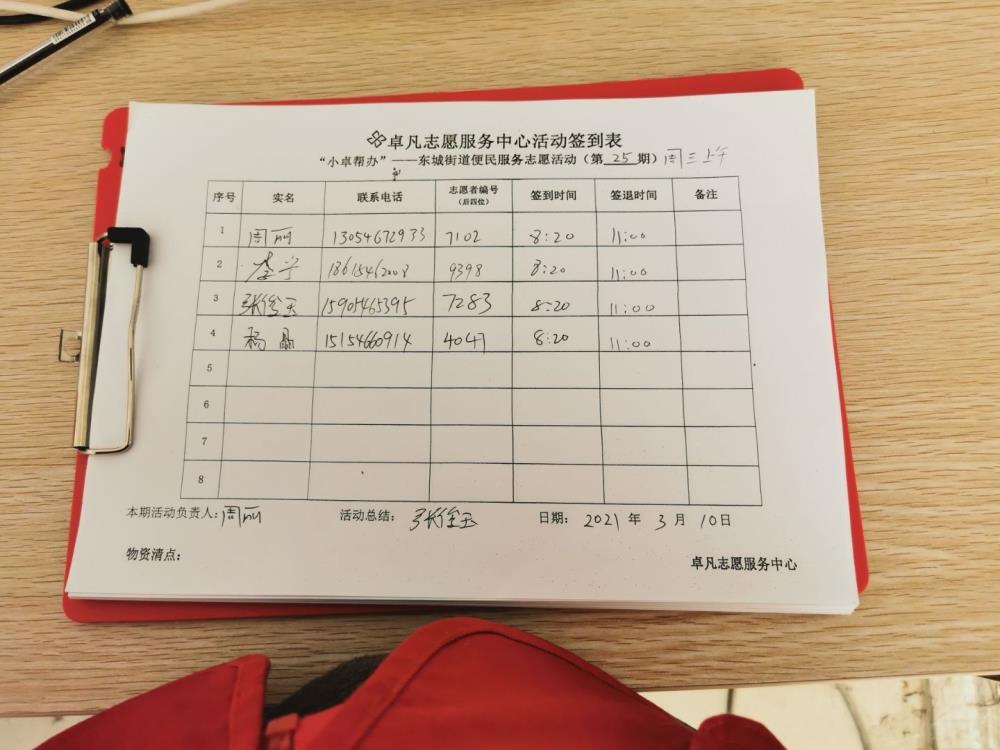 卓凡志愿服务中心活动签到表
“小卓帮办”——东城街道便民服务志愿活动（第25期）周三上午
序号 实名 联系电话 志愿者编号（后四位） 签到时间 签退时间 备注
1 周丽 13054672933 7102 8:20 11:00
2 李宁 9398 8:20 11:00
3 15905465395 7283 8:20 11:00
4 杨晶 15154660914 4047 8:20 11:00
5
6
7
8
本期活动负责人：周丽 活动总结： 日期：2021年3月10日
物资清点： 卓凡志愿服务中心